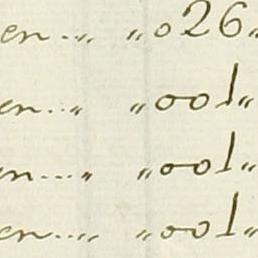 en..„ „026„
en..„ „001„
n...„ „001„
en..„ „001„